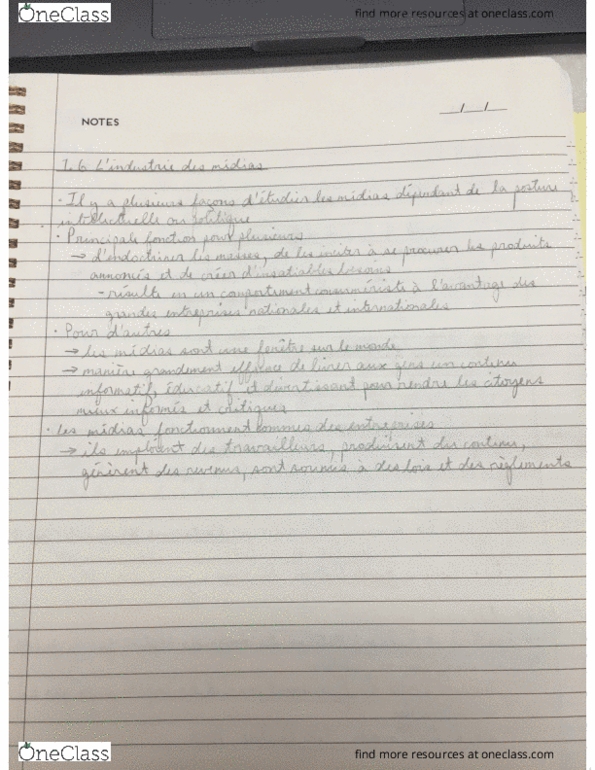 OneClass
find more resources at oneclass.com
NOTES
1.6 L'industrie des médias
· Il y a plusieurs façons d'étudier les médias dépendant de la posture
intellectuelle ou politique
· Principale fonction pour plusieurs
→ d'endoctriner les masses, de les inciter à se procurer les produits
annoncés et de créer d'insatiables besoins
- résulte en un comportement consumériste à l'avantage des
grandes entreprises nationales et internationales
· Pour d'autres
→ les médias sont une fenêtre sur le monde
→ manière grandement efficace de livrer aux gens un contenu
informatif, éducatif et divertissant pour rendre les citoyens
mieux informés et critiques
· Les médias fonctionnent commes des entreprises
→ ils emploient des travailleurs, produisent du contenu,
génèrent des revenus, sont soumis à des lois et des règlements
OneClass
find more resources at oneclass.com